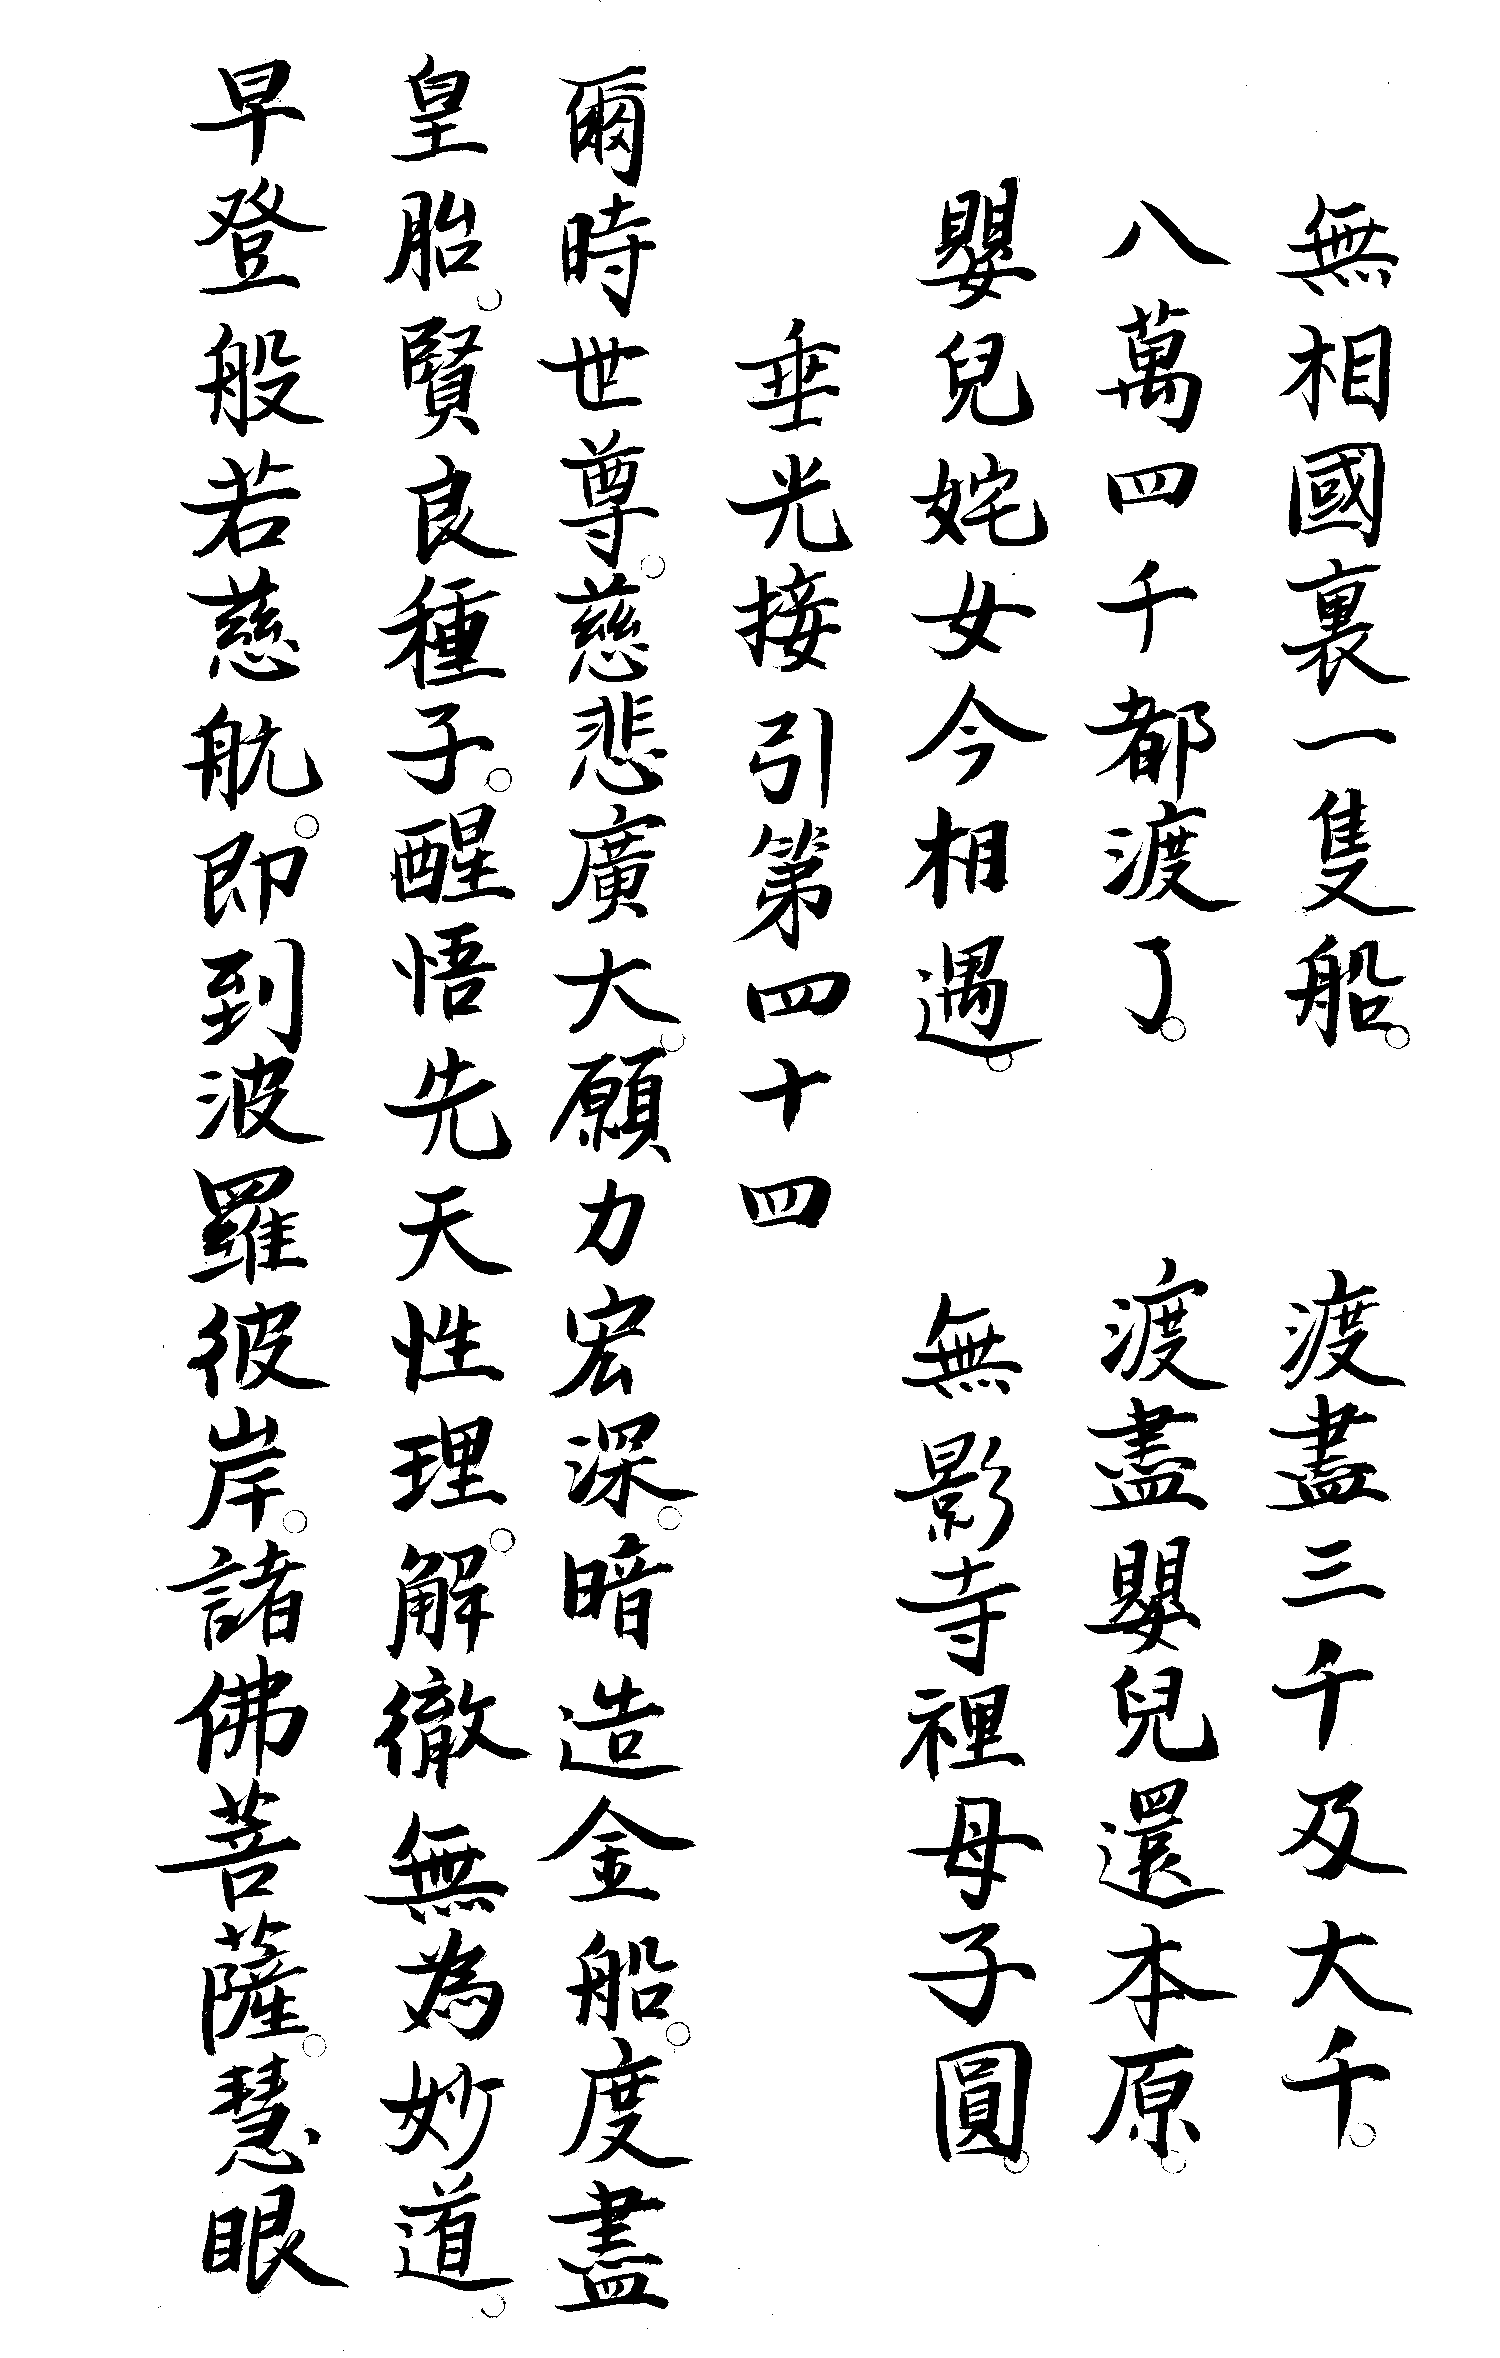 無相國裏一隻船。渡盡三千及大千。
八萬四千都渡了。渡盡嬰兒還本原。
嬰兒姹女今相遇。無影寺裡母子圓。
垂光接引第四十四
爾時世尊。慈悲廣大。願力宏深。暗造金船。度盡
皇胎。賢良種子。醒悟先天性理。解徹無為妙道。
早登般若慈航。即到波羅彼岸。諸佛菩薩。慧眼